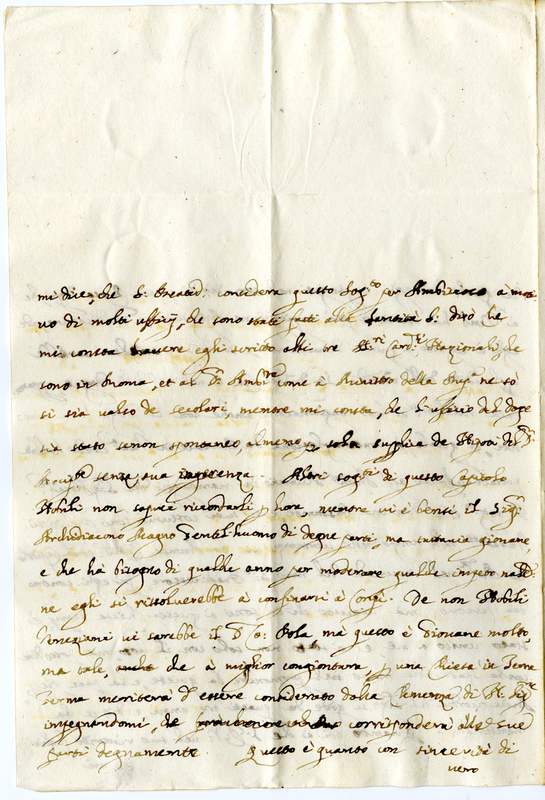 mi dice, che S. Beatid: considera questo Sog.to per Ambizioso à moti
vo di molti uffizij, che sono stati fatti alla Santità S: dirò che
mi consta havere egli scritto alli tre SS.ri Card.li Nazionali, che
sono in Roma, et al S.r Amb.re come à Ministro della
si sia valso de secolari, mentre mi consta, che l'ufficio del Doge
sia stato senon spontaneo, almeno p sola supplica de Nipoti del
senza sua ingerenza. Altri sogti di questo Capitolo
Nobili non saprei ricordarli p hora, mentre vi è bensi il Sig.r
Archidiacono Gentil'huomo di degne parti, ma tuttavia giovane,
e che ha bisogno di qualche anno per moderare qualche impeto
ne egli si rissolverebbe à confinarsi à De non Nobili
Veneziani vi sarebbe il D. Co: Pola, ma questo è Giovane molto,
ma tale, che à miglior congiontura, p una Chiesa in Terra
ferma meriterà d'essere considerato dalla Clemenza di N. Sig.re
impegnandomi, che corrisponderà alle sue
parti degnamente. Questo è quanto con sincerità di
vero